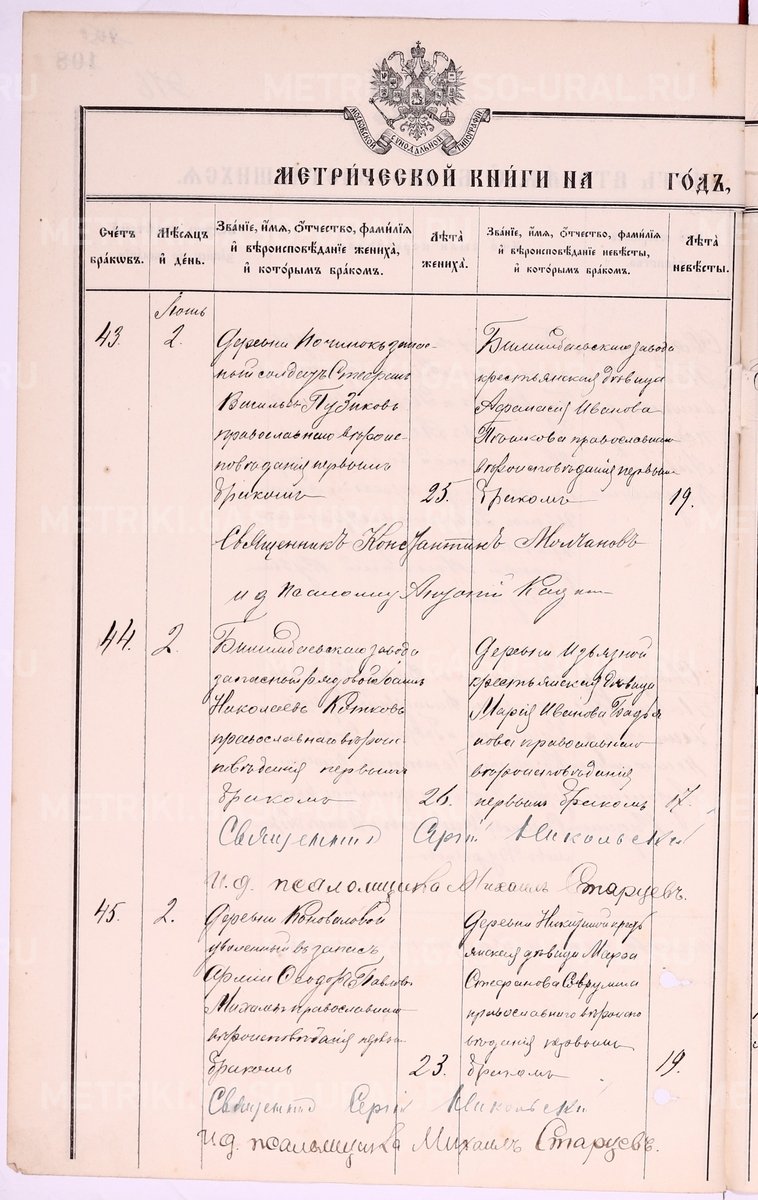 МОСКОВСКОЙ СѴНОДАЛЬНОЙ ТИПОГРАФІИ
МЕТРИ́ЧЕСКОЙ КНИ́ГИ НА ГОДЪ,
Счетъ бра́кωвъ.
Мѣ́сяцъ и де́нь.
Зва́нїе, и́мя, ѻ́тчество, фами́лїя и вѣроисповѣ́данїе жениха̀, и кото́рымъ бра́комъ.
Лѣта̀ жениха̀.
Зва́нїе, и́мя, ѻ́тчество, фами́лїя и вѣроисповѣ́данїе невѣ́сты, и кото́рымъ бра́комъ.
Лѣта̀ невѣ́сты.
Іюнь
43.
2.
Деревни Починокъ запас-
ный солдатъ Стефанъ
Васильевъ Пузиковъ
православнаго вѣроис-
повѣданія первымъ
бракомъ
25.
Билимбаевскаго завода
крестьянская дѣвица
Афанасія Иванова
православнаго
вѣроисповѣданія первымъ
бракомъ
19.
Священникъ Константинъ Молчановъ
и д псаломщ
44.
2.
Билимбаевскаго завода
запасный рядовой
Николаевъ Котковъ
православнаго вѣроис-
повѣданія первымъ
бракомъ
26.
Деревни Извязной
крестьянская дѣвица
Марія Иванова
православнаго
вѣроисповѣданія
первымъ бракомъ
17.
Священникъ Сергій Никольскій
И. д. псаломщика Михаилъ Старцевъ.
45.
2.
Деревни Коноваловой
уволенный въ запасъ
Арміи Ѳеодоръ Павловъ
православнаго
вѣроисповѣданія первымъ
бракомъ
23.
Деревни
дѣвица
Стефанова
православнаго вѣроиспо
вѣданія первымъ
бракомъ
19.
Священникъ Сергій Никольскій
И. д. псаломщика Михаилъ Старцевъ.